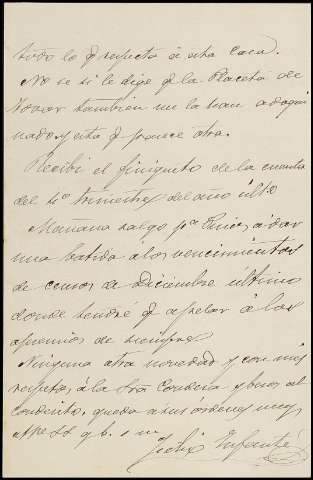 todo lo q respecta á esta Casa.
No se si le dije q la Placeta de
tambien me la han adoqui
nado y esta q parece otra.
Recibi el finiquito de la cuenta
del 4º trimestre del año ulto
Mañana salgo pª á dar
una batida a los vencimientos
de censos de Diciembre último
donde tendré q apelar á los
apremios de siempre
Ninguna otra novedad y con mis
respetos á la Sra Condesa y besos al
Condesito, queda a sus órdenes muy
q b. s m.
Felix Infante